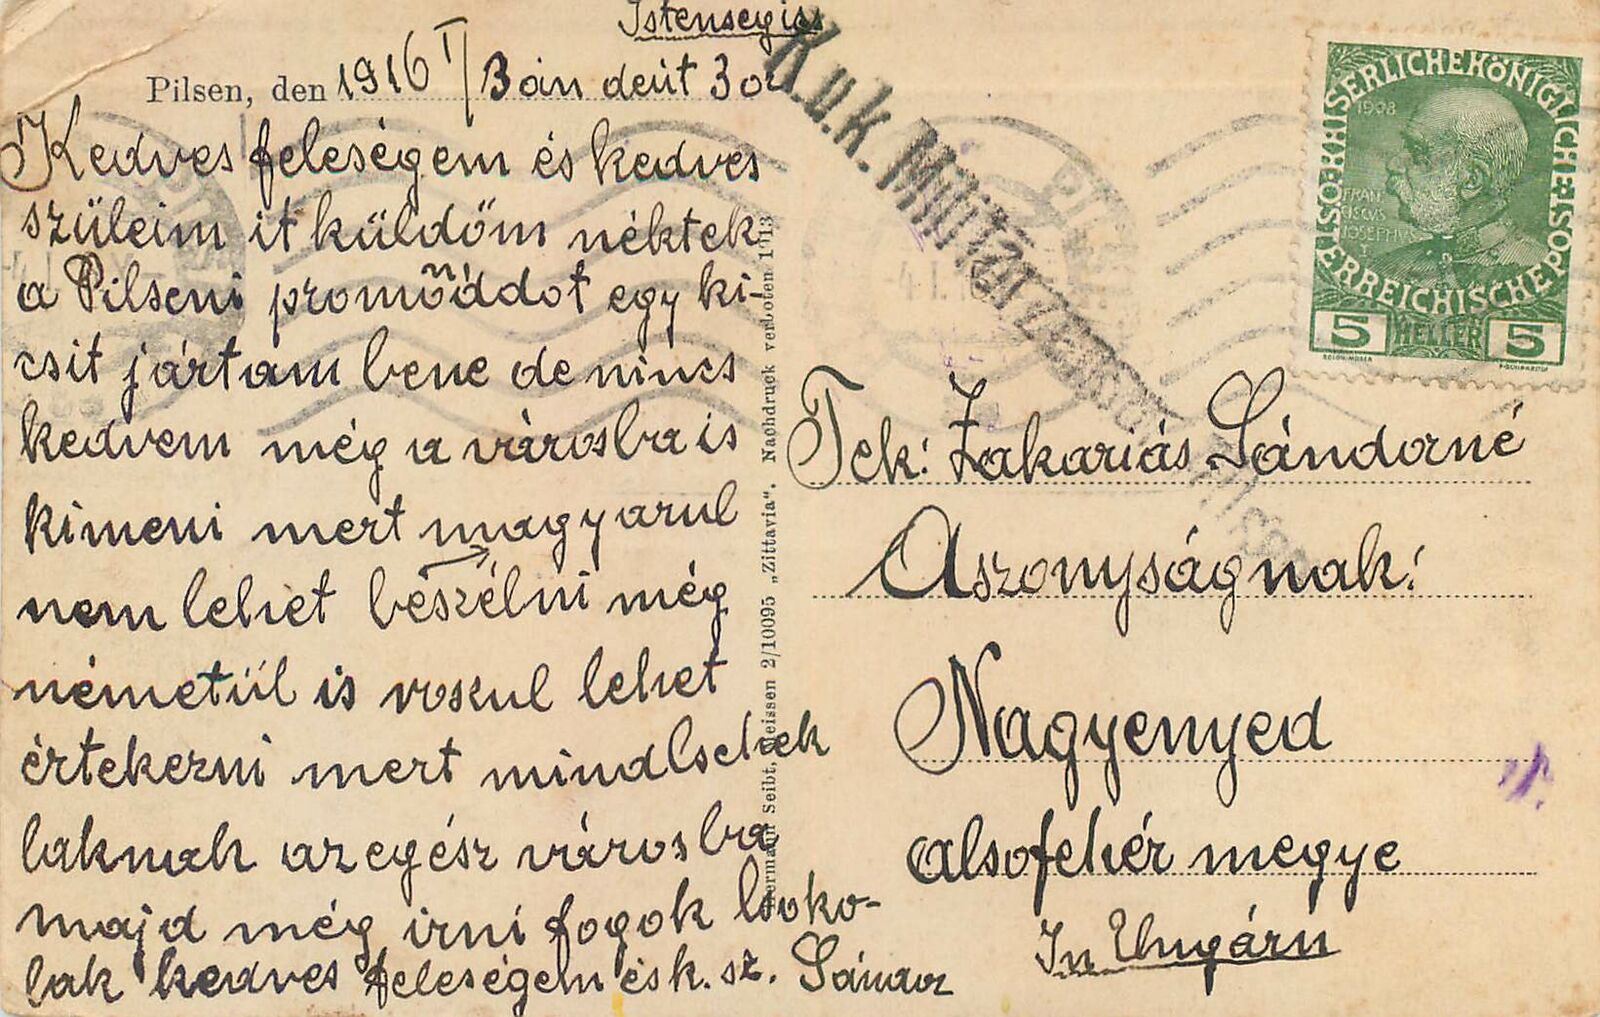 Istensegiss
Pilsen, den 1916 I/3 án deút 3 or
Kedves feleségem és kedves
szüleim it küldöm néktek
a Pilseni promönáddot egy ki-
csit jártam bene de nincs
kedvem még a városba is
kimeni mert magyarul
nem lehet beszélni még
németűl is roszul lehet
értekezni mert mind csehek
laknak az egész városba
majd még irni fogok Csoko-
lak kedves feleségem és k. sz. Sándor
Hermann Seibt, Meissen 2/10095 „Zittavia“. Nachdruck verboten 1913
K.u.k. Militärzensur Pilsen
KAISERLICHE KÖNIGLICHE ÖSTERREICHISCHE POST
1908
FRAN
CISCVS
IOSEPHVS
I
5 HELLER 5
Tek: Zakariás Sándorné
Aszonyságnak!
Nagyenyed
alsofehér megye
In Ungárn